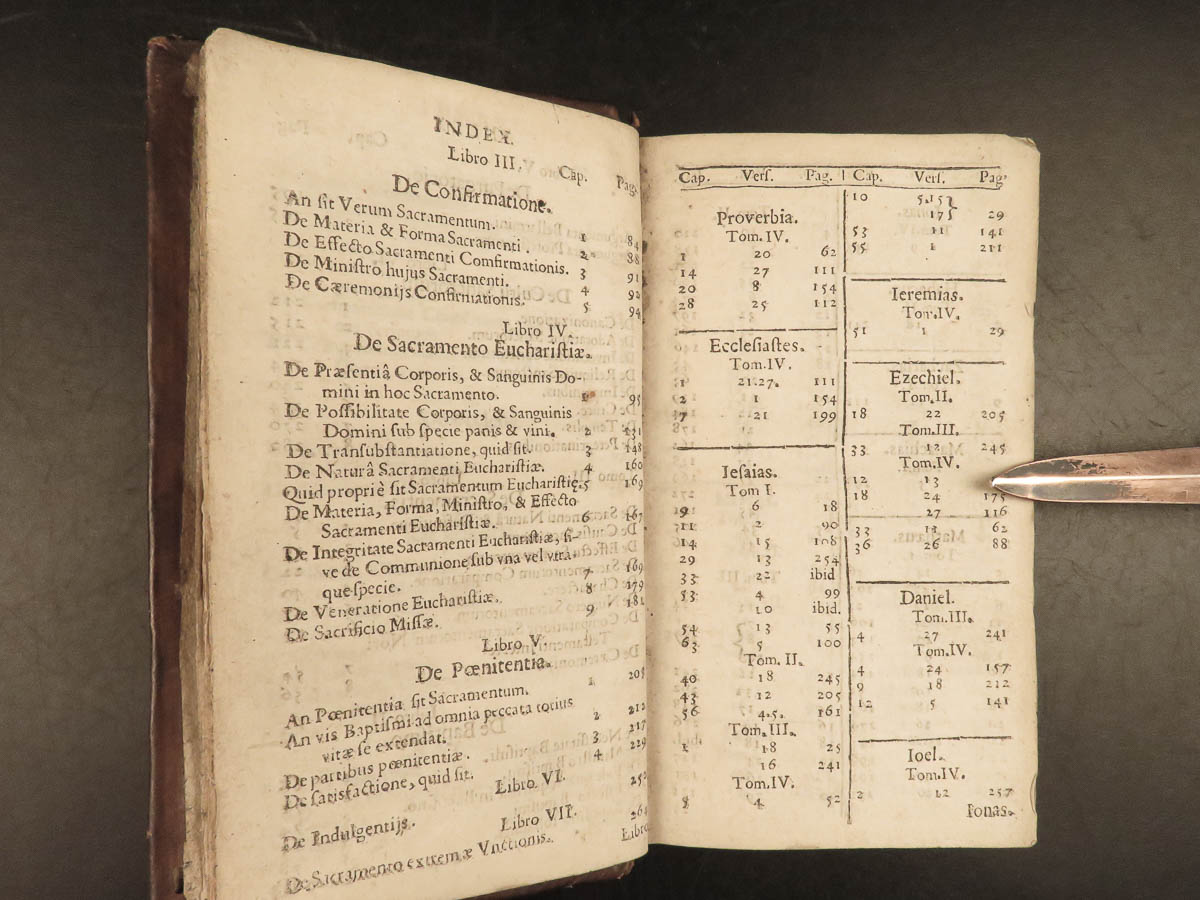 INDEX.
Libro III. Cap. Pag.
De Confirmatione.
An sit Verum Sacramentum. 1 84
De Materia & Forma Sacramenti. 2 88
De Effecto Sacramenti Comfirmationis. 3 91
De Ministro hujus Sacramenti. 4 92
De Cæremonijs Confirmationis. 5 94
Libro IV.
De Sacramento Eucharistiæ.
De Præsentiâ Corporis, & Sanguinis Do-
mini in hoc Sacramento. 1 95
De Possibilitate Corporis, & Sanguinis
Domini sub specie panis & vini. 2 131
De Transubstantiatione, quid sit. 3 148
De Naturâ Sacramenti Eucharistiæ. 4 160
Quid propriè sit Sacramentum Eucharistię. 5 169
De Materia, Forma, Ministro, & Effecto
Sacramenti Eucharistiæ. 6 167
De Integritate Sacramenti Eucharistiæ, si-
ve de Communione sub vna vel vtrâ-
que specie. 7 169
De Veneratione Eucharistiæ. 8 179
De Sacrificio Missæ. 9 181
Libro V.
De Pœnitentia.
An Pœnitentia sit Sacramentum. 1 205
An vis Baptismi ad omnia peccata totius
vitæ se extendat. 2 212
De partibus pœnitentiæ. 3 217
De satisfactione, quid sit. 4 229
Libro VI.
De Indulgentijs. 252
Libro VII.
De Sacramento extremæ Vnctionis. 264
Libro
Cap. Vers. Pag.
Proverbia.
Tom. IV.
1 20 62
14 27 111
20 8 154
28 25 112
Ecclesiastes.
Tom. IV.
1 21.27. 111
2 1 154
7 21 199
Iesaias.
Tom I.
9 6 18
11 2 90
14 15 108
29 13 254
33 22 ibid
53 4 99
10 ibid.
54 13 55
63 5 100
Tom. II.
40 18 245
43 12 205
56 4.5. 161
Tom. III.
1 18 25
16 241
Tom. IV.
8 4 52
Cap. Vers. Pag.
10 5.15
175 29
53 11 141
55 1 211
Ieremias.
Tom. IV.
51 1 29
Ezechiel.
Tom. II.
18 22 205
Tom. III.
33 12 245
Tom. IV.
12 13
18 24 175
27 116
33 11 62
36 26 88
Daniel.
Tom. III.
4 27 241
Tom. IV.
4 24 157
9 18 212
12 5 141
Ioel.
Tom. IV.
2 12 257
Ionas.